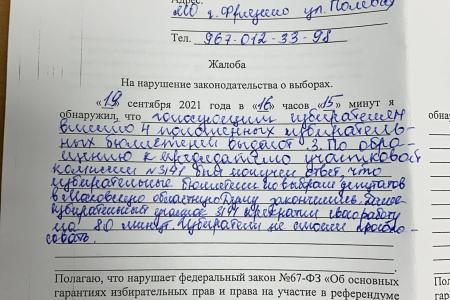 Адрес:
МО г. Фрязино ул. Полевая
Тел. 967-012-33-98
Жалоба
На нарушение законодательства о выборах.
«19» сентября 2021 года в «16» часов «15» минут я
обнаружил, что голосующим избирателям
вместо 4 положенных избиратель-
ных бюллетеней выдают 3. По обра-
щению к председателю участковой
комиссии №3197 был получен ответ, что
избирательные бюллетени по выборам депутатов
в Московскую областную Думу закончились.
избирательный участок 3197 прекратил свою работу
на 80 минут. Избиратели не смогли проголо-
совать.
Полагаю, что нарушает федеральный закон №67-ФЗ «Об основных
гарантиях избирательных прав и права на участие в референдуме
обна